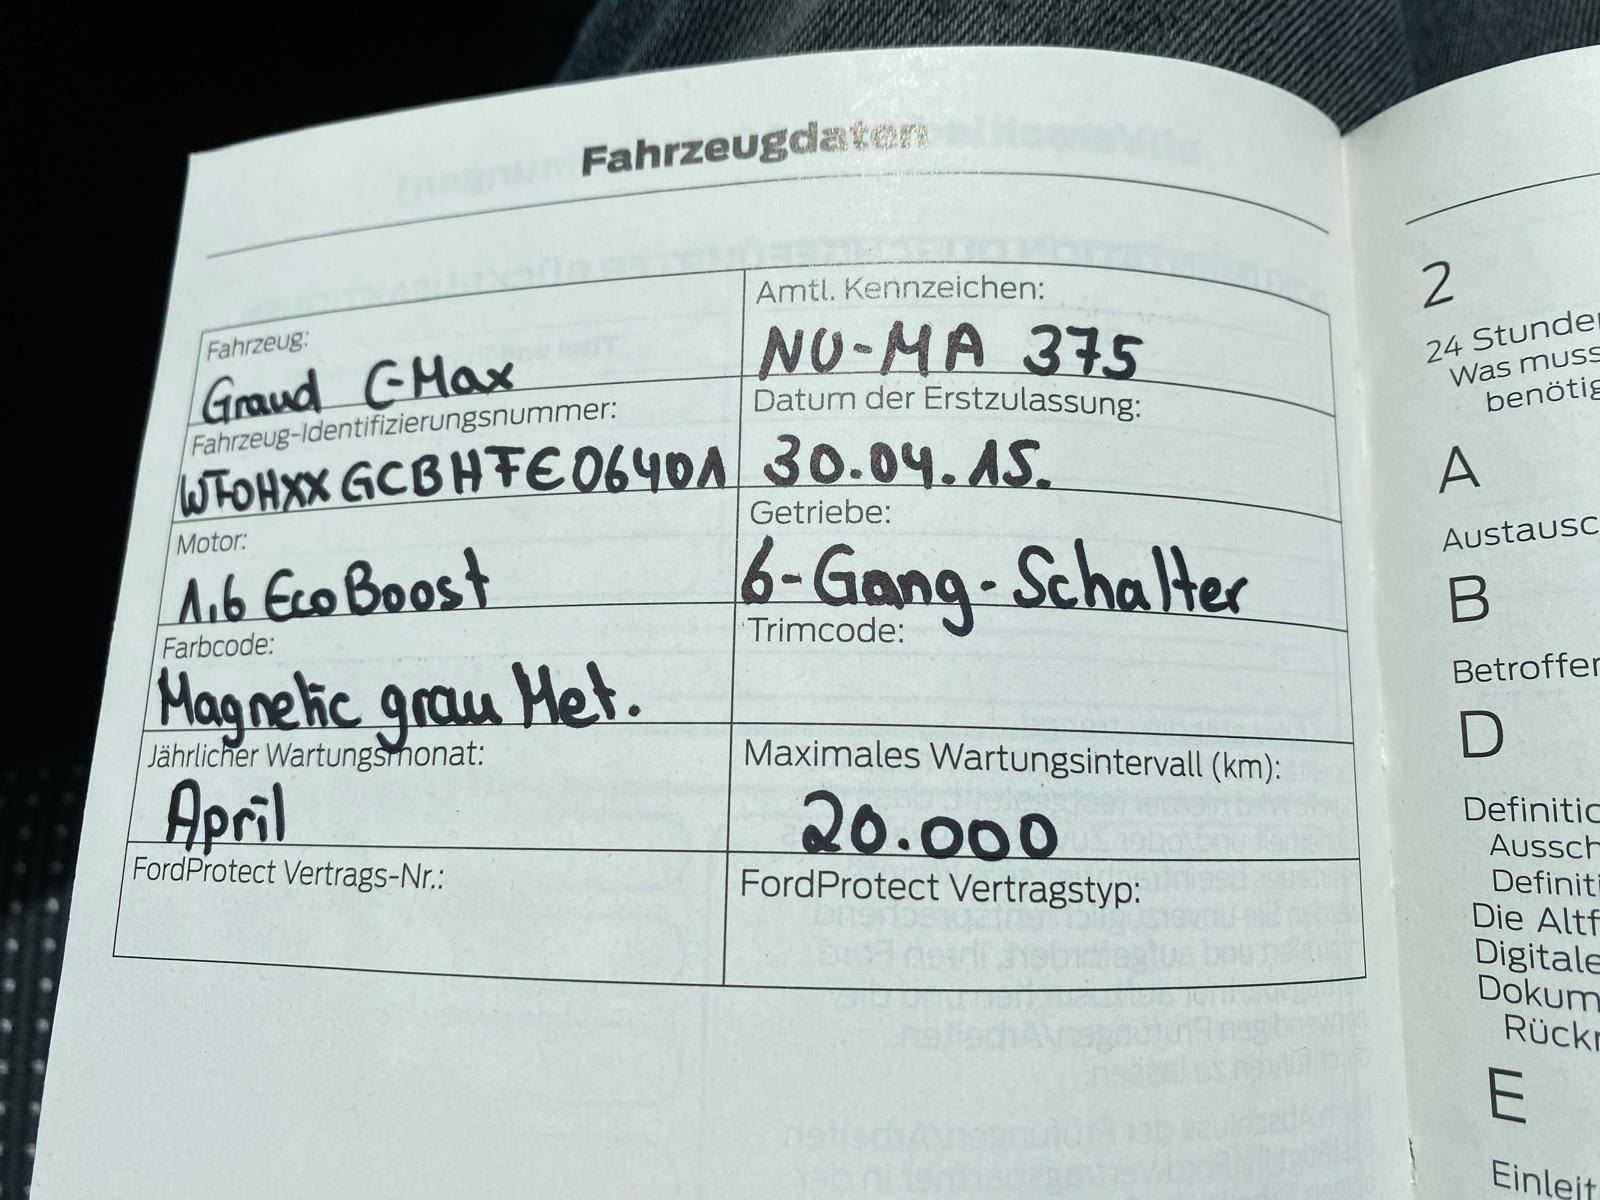 Fahrzeugdaten
Fahrzeug:
Grand C-Max
Amtl. Kennzeichen:
NU-MA 375
Fahrzeug-Identifizierungsnummer:
WF0HXXGCBHFE06401
Datum der Erstzulassung:
30.04.15.
Motor:
1.6 EcoBoost
Getriebe:
6-Gang-Schalter
Farbcode:
Magnetic grau Met.
Trimcode:
Jährlicher Wartungsmonat:
April
Maximales Wartungsintervall (km):
20.000
FordProtect Vertrags-Nr.:
FordProtect Vertragstyp:
2
24 Stunde
Was muss
benötig
A
Austausc
B
Betroffer
D
Definitic
Aussch
Definiti
Die Altf
Digitale
Dokum
Rückr
E
Einleit